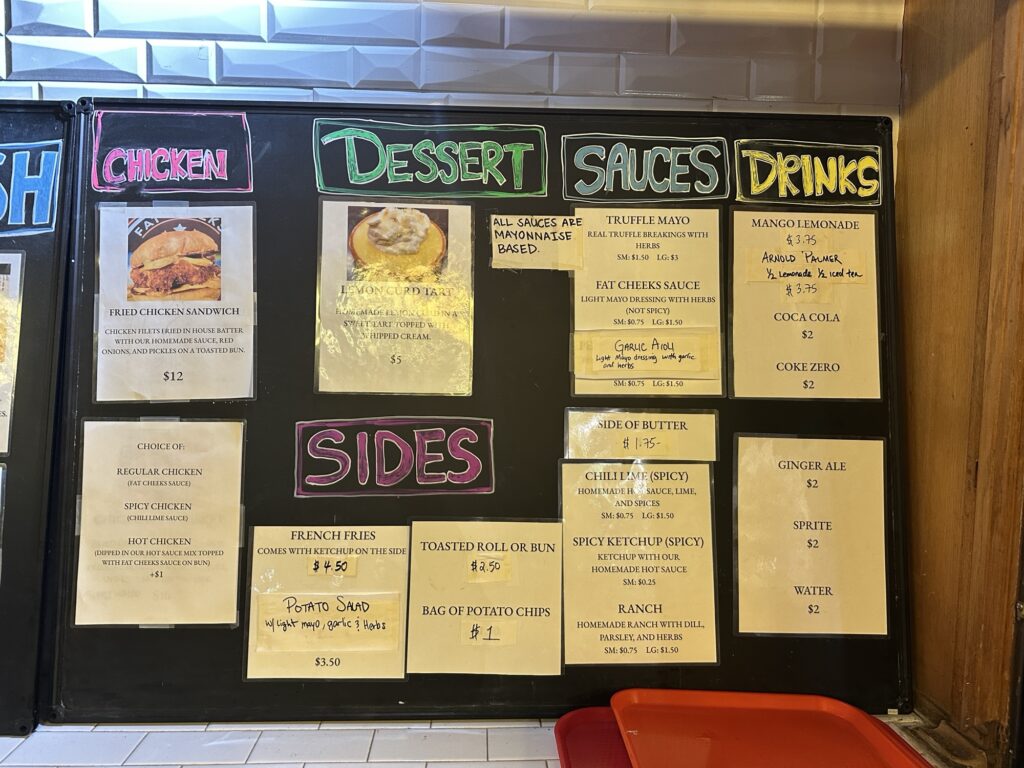 SH
CHICKEN
FRIED CHICKEN SANDWICH
CHICKEN FILETS FRIED IN HOUSE BATTER
WITH OUR HOMEMADE SAUCE, RED
ONIONS, AND PICKLES ON A TOASTED BUN.
$12
CHOICE OF:
REGULAR CHICKEN
(FAT CHEEKS SAUCE)
SPICY CHICKEN
(CHILI LIME SAUCE)
HOT CHICKEN
(DIPPED IN OUR HOT SAUCE MIX TOPPED
WITH FAT CHEEKS SAUCE ON BUN)
+$1
DESSERT
LEMON CURD TART
HOMEMADE LEMON CURD IN A
SWEET TART TOPPED WITH
WHIPPED CREAM.
$5
SIDES
FRENCH FRIES
COMES WITH KETCHUP ON THE SIDE
$4.50
POTATO SALAD
w/ light mayo, garlic & Herbs
$3.50
TOASTED ROLL OR BUN
$2.50
BAG OF POTATO CHIPS
$1
SAUCES
ALL SAUCES ARE
MAYONNAISE
BASED.
TRUFFLE MAYO
REAL TRUFFLE BREAKINGS WITH
HERBS
SM: $1.50 LG: $3
FAT CHEEKS SAUCE
LIGHT MAYO DRESSING WITH HERBS
(NOT SPICY)
SM: $0.75 LG: $1.50
GARLIC AIOLI
Light Mayo dressing with garlic
and herbs
SM: $0.75 LG: $1.50
SIDE OF BUTTER
$1.75-
CHILI LIME (SPICY)
HOMEMADE HOT SAUCE, LIME,
AND SPICES
SM: $0.75 LG: $1.50
SPICY KETCHUP (SPICY)
KETCHUP WITH OUR
HOMEMADE HOT SAUCE
SM: $0.25
RANCH
HOMEMADE RANCH WITH DILL,
PARSLEY, AND HERBS
SM: $0.75 LG: $1.50
DRINKS
MANGO LEMONADE
$3.75
ARNOLD PALMER
1/2 Lemonade 1/2 iced tea
$3.75
COCA COLA
$2
COKE ZERO
$2
GINGER ALE
$2
SPRITE
$2
WATER
$2